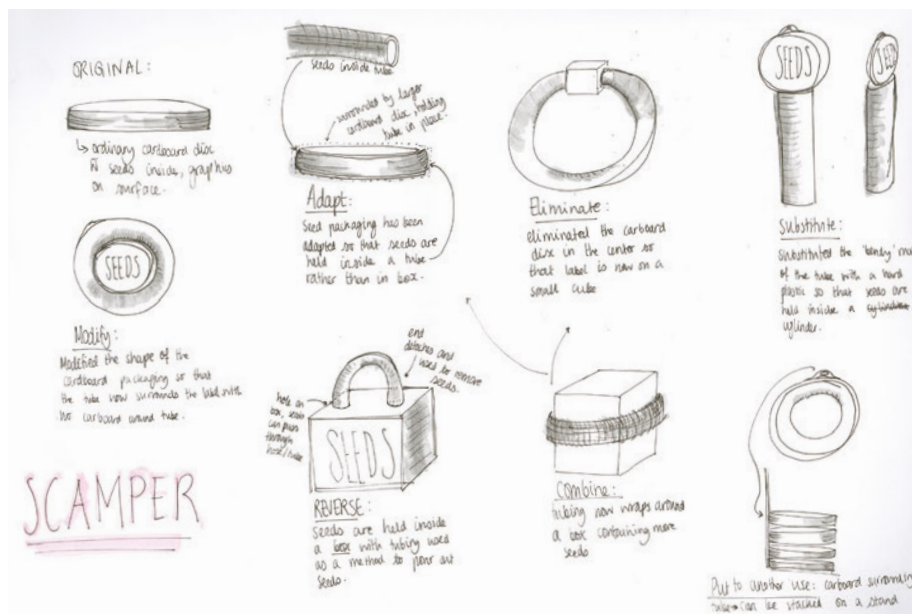 ORIGINAL:
↳ ordinary cardboard disc
w̄ seeds inside, graphics
on surface.
SEEDS
Modify:
Modified the shape of the
cardboard packaging so that
the tube now surrounds the label with
no carboard around tube.
SCAMPER
seeds inside tube
surrounded by larger
cardboard disc, holding
tube in place.
Adapt:
Seed packaging has been
adapted so that seeds are
held inside a tube
rather than in box.
end
detaches and
used to remove
seeds.
hole on
box, seeds
can pass
through
SEEDS
REVERSE:
Seeds are held inside
a box with tubing used
as a method to pour out
seeds.
Eliminate:
eliminated the carboard
disc in the center so
that label is now on a
small cube
Combine:
tubing now wraps around
a box containing more
seeds
SEEDS
SEEDS
Substitute:
substituted the 'bendy'
of the tube with a hard
plastic so that seeds are
held inside a
cylinder.
Put to another use: carboard surrounding
tube → can be stacked on a stand